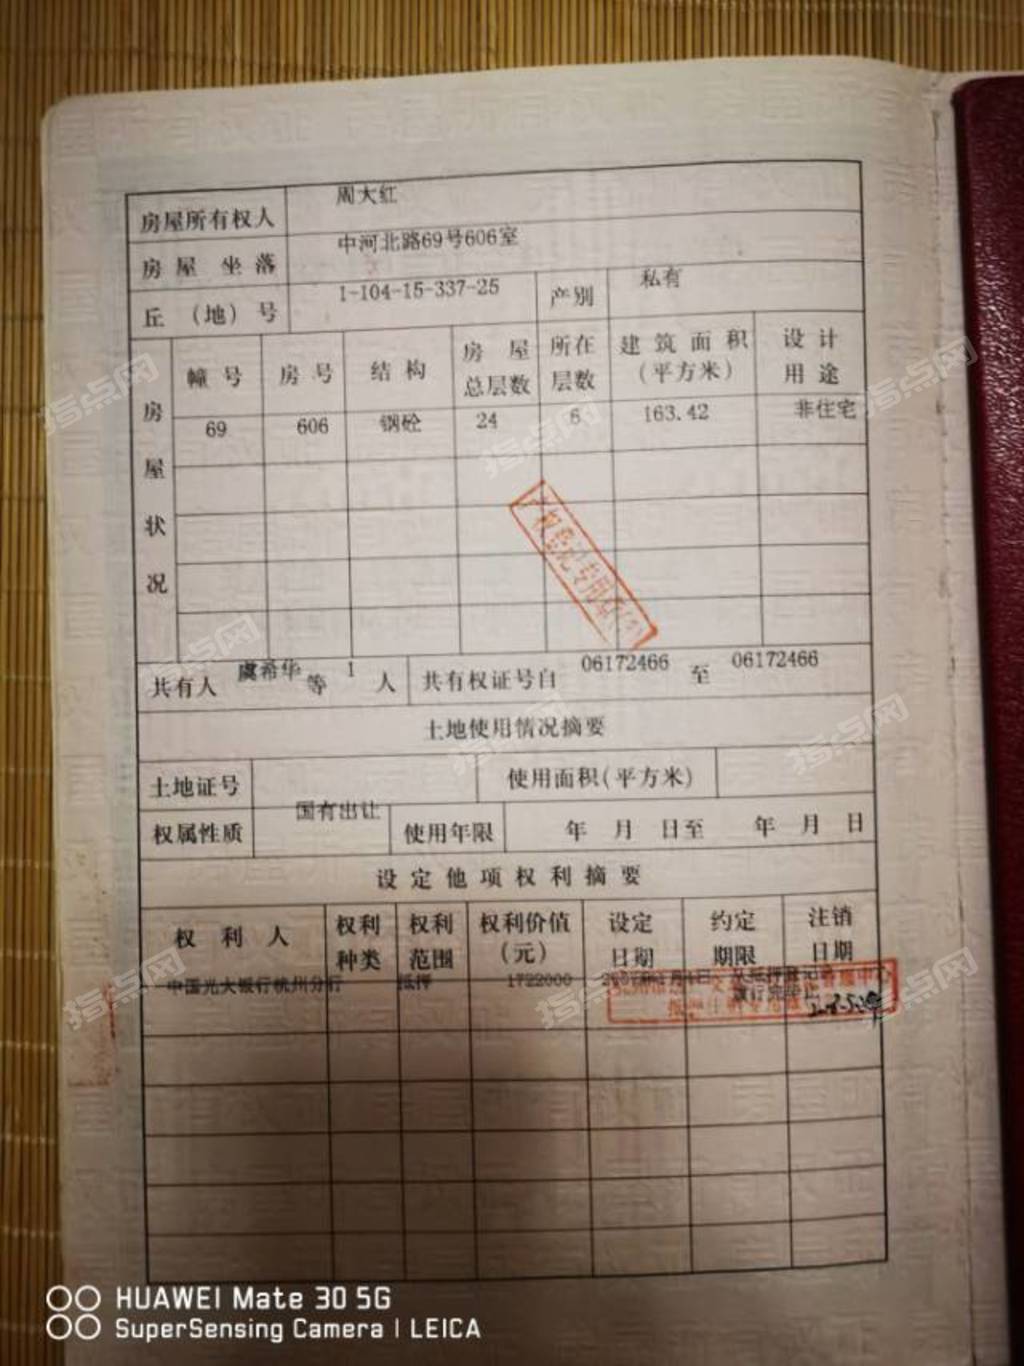 房屋所有权人 周大红
房屋坐落 中河北路69号606室
丘（地）号 1-104-15-337-25 产别 私有
房屋状况
幢号 房号 结构 房屋总层数 所在层数 建筑面积（平方米） 设计用途
69 606 钢砼 24 6 163.42 非住宅
产权登记专用章
共有人 虞希华 等 1 人 共有权证号自 06172466 至 06172466
土地使用情况摘要
土地证号 使用面积(平方米)
权属性质 国有出让 使用年限 年 月 日至 年 月 日
设定他项权利摘要
权利人 权利种类 权利范围 权利价值(元) 设定日期 约定期限 注销日期
中国光大银行杭州分行 抵押 1722000
指点网
指点网
指点网
指点网
指点网
指点网
指点网
指点网
指点网
HUAWEI Mate 30 5G
SuperSensing Camera | LEICA